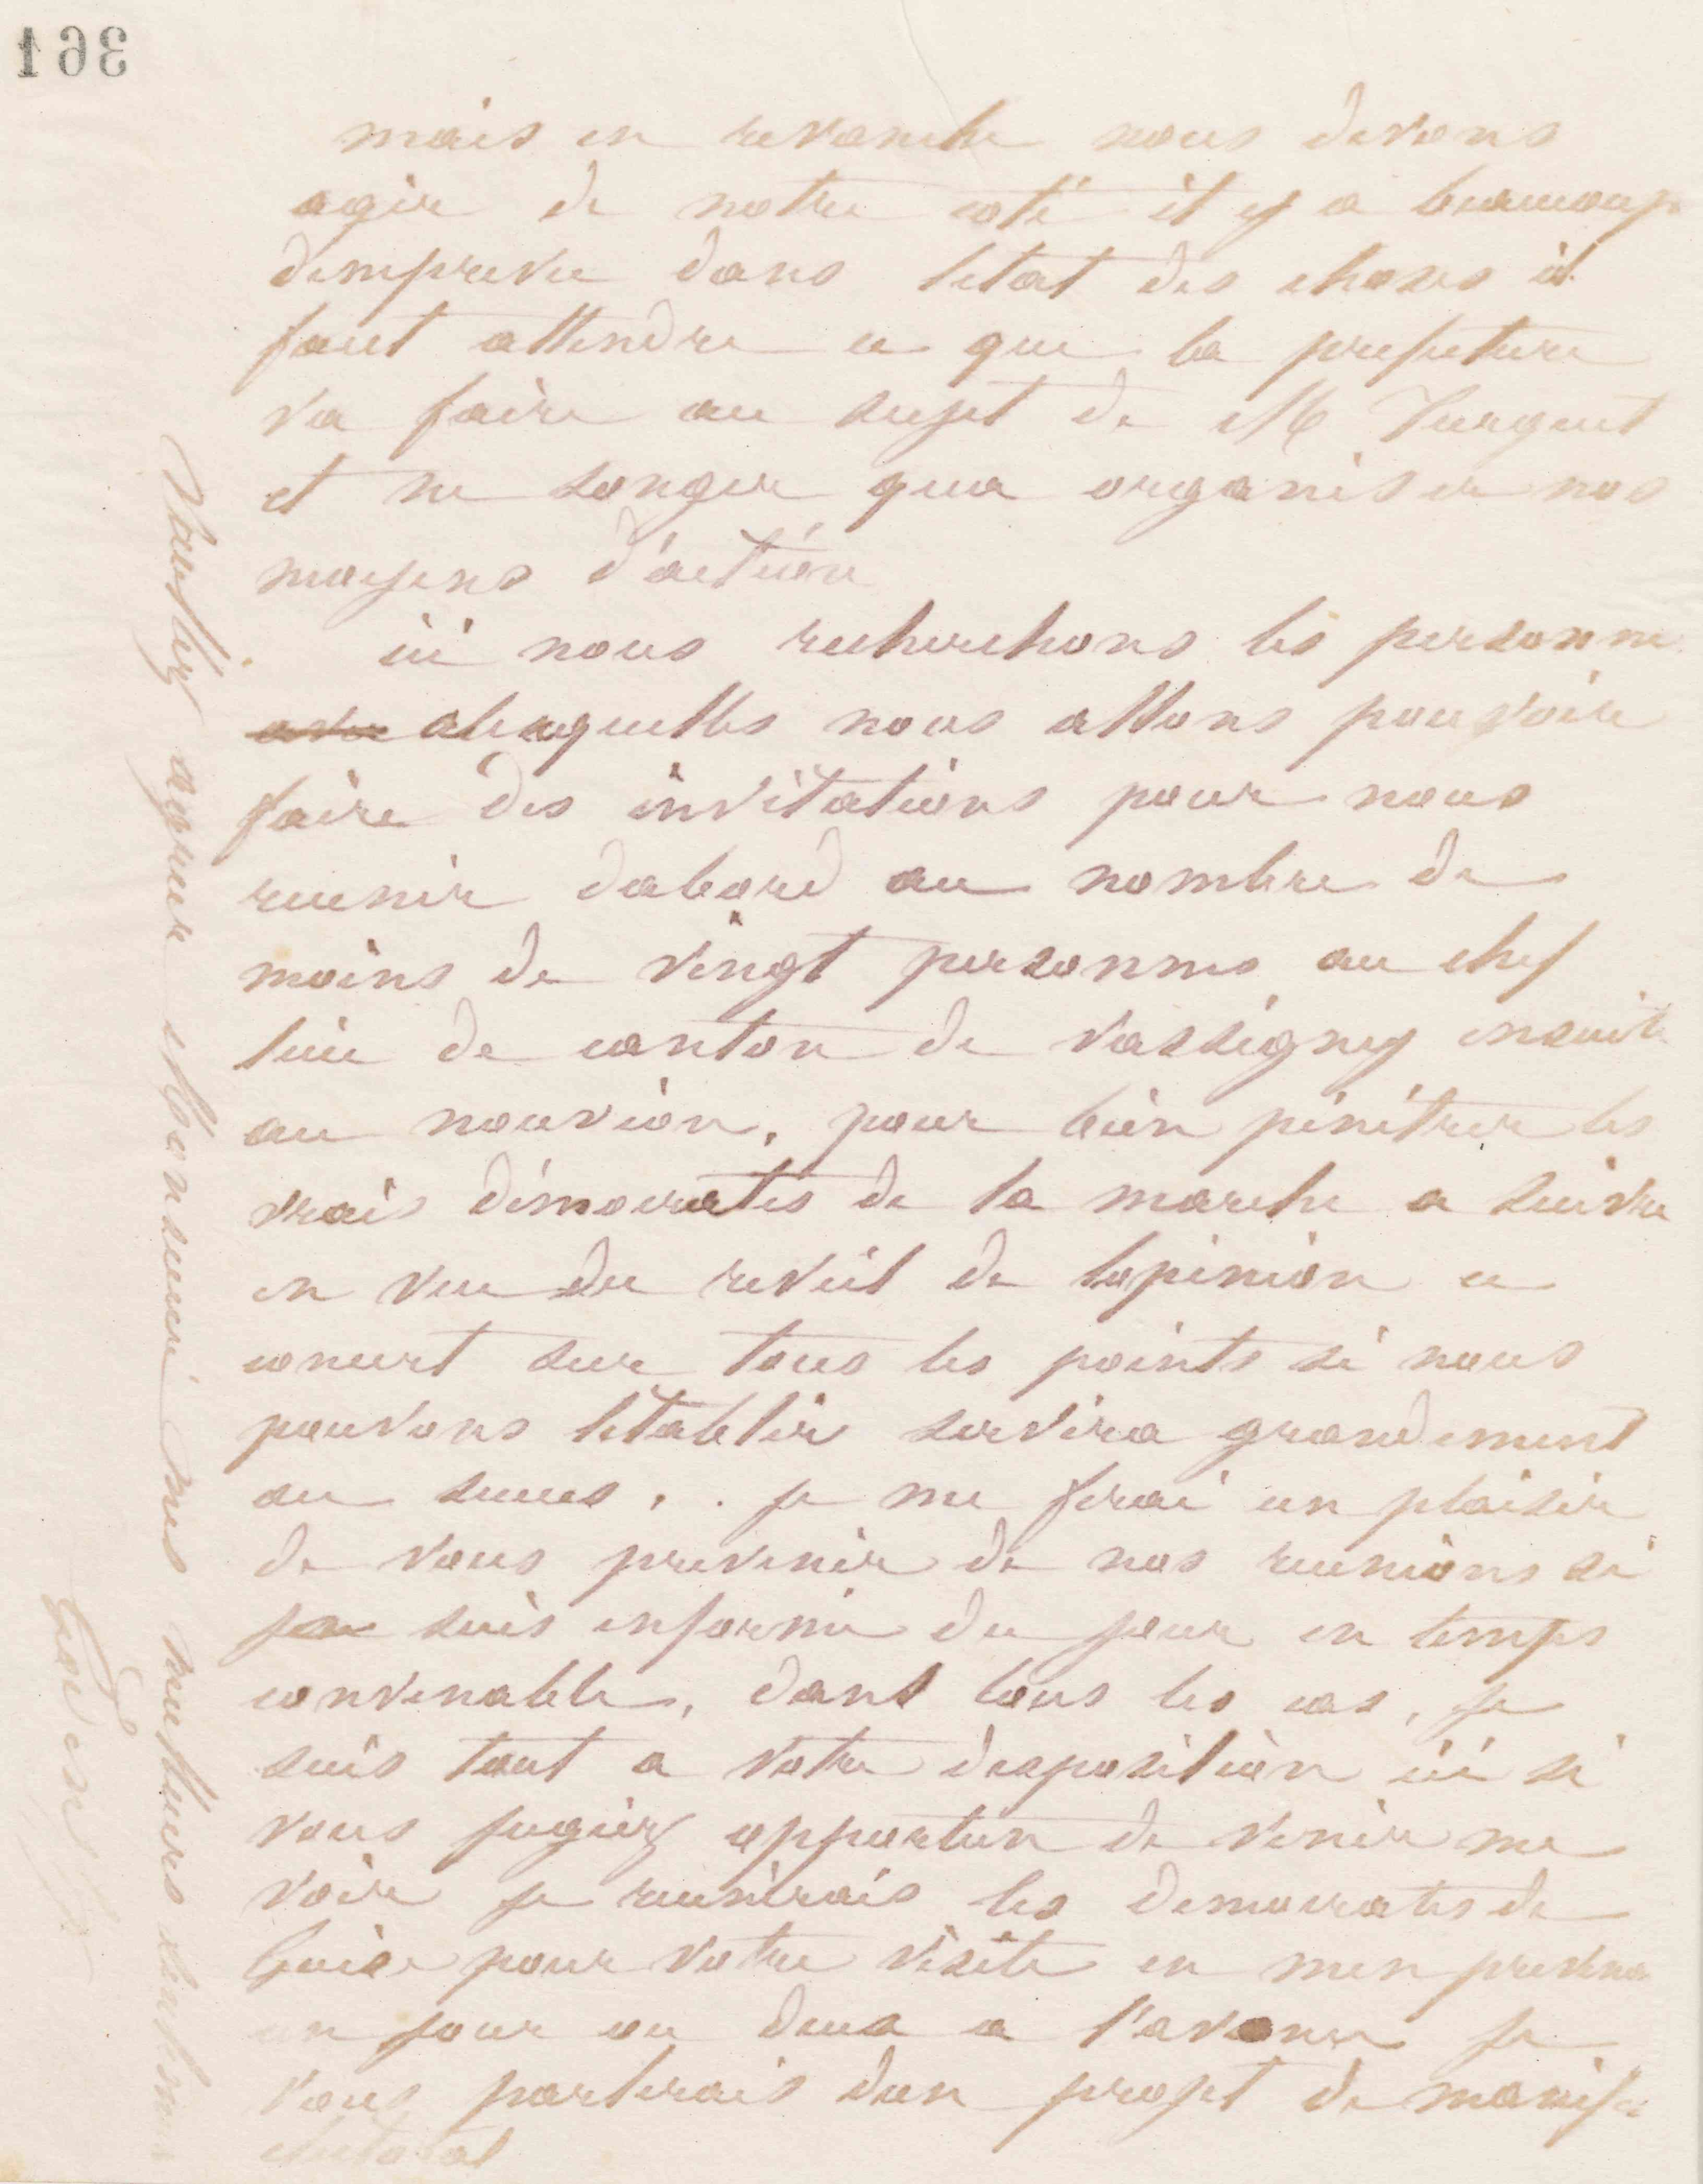 361
mais en revanche nous devons
agir de notre coté il y a beaucoup
dimprevu dans letat des choses il
faut attendre ce que la prefecture
va faire au sujet de M Turquet
et ne songer qua organiser nos
moyens d'action
ici nous recherchons les personne
avec alesquelles nous allons pouvoir
faire des invitations pour nous
reunir dabord au nombre de
moins de vingt personnes au chef
lieu de canton de vassigny ensuite
au nouvion, pour bien pénétrer les
vrais démocrates de la marche a suivre
en vue du reveil de lopinion ce
concert sur tous les points si nous
pouvons letablir servira grandement
au succes. je me ferai un plaisir
de vous prevenir de nos reunions si
je suis informé du jour en temps
convenable, dans tous les cas, je
suis tout a votre disposition ici si
vous jugiez opportun de venir me
voir je reunirais les democrates de
Guise pour votre visite en men prevenan
un jour ou deux a l'avance je
vous parlerais dun projet de manife
electoral
Veuillez agreer Monsieur mes meilleurs sentimen
Godin